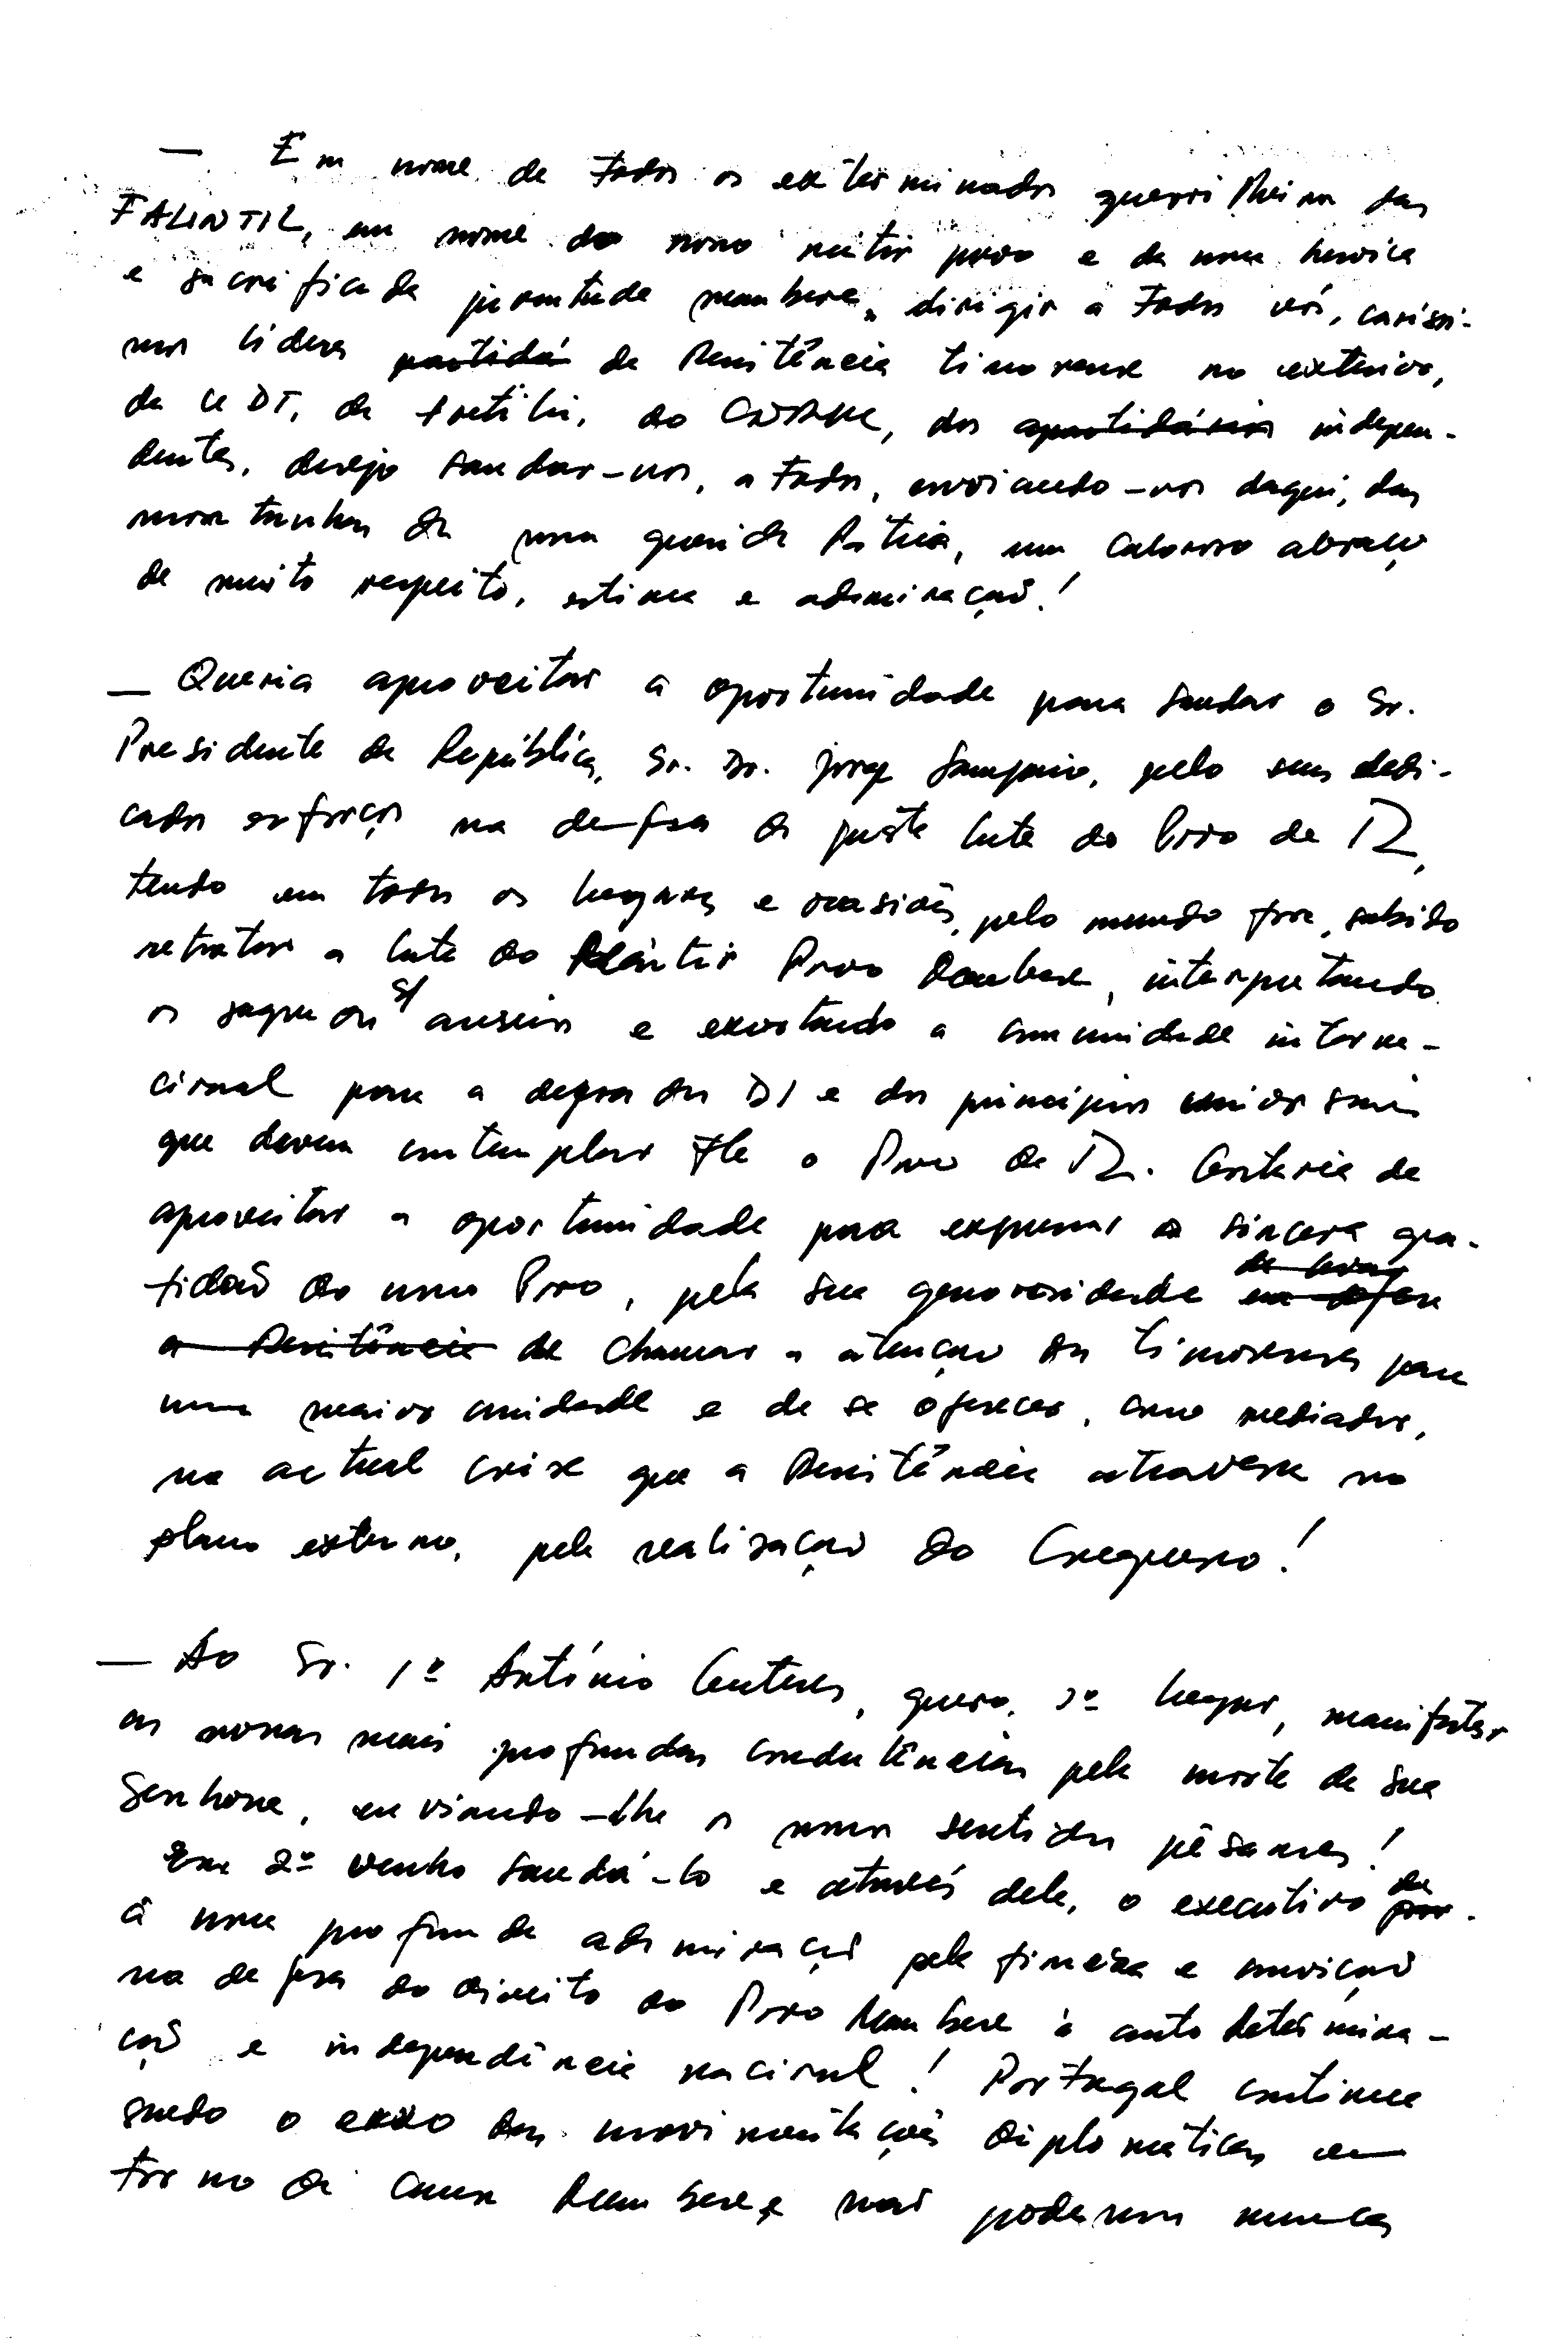 — Em nome de todos os exterminados guerrilheiros das
FALINTIL, em nome do nosso mártir povo e da nossa heroica
e sacrificada juventude maubere, dirigir a todos vós, caríssi-
mos líderes partidá da Resistência timorense no exterior,
da UDT, da Fretilin, do CNRM, dos apartidários indepen-
dentes, desejo saudar-vos, a todos, enviando-vos daqui, das
montanhas da nossa querida Pátria, um caloroso abraço
de muito respeito, estima e admiração!
— Queria aproveitar a oportunidade para saudar o Sr.
Presidente da República, Sr. Dr. Jorge Sampaio, pelo seus dedi-
cados esforços na defesa da justa luta do Povo de
tendo em todos os lugares e ocasiões, pelo mundo fora, sabido
retratar a luta do Mártir Povo Maubere, interpretando
os sagrados s/ anseios e exortando a comunidade interna-
cional para a defesa dos DI e dos princípios universais
que devem contemplar tb o Povo de Gostaria de
aproveitar a oportunidade para expressar a sincera gra-
tidão do nosso Povo, pela sua generosidade de levar na defesa
a Resistência de chamar a atenção dos timorenses para
uma maior unidade e de se oferecer, como mediador,
na actual crise que a Resistência atravessa no
plano externo, pela realização do Congresso!
— Ao Sr. 1º António Guterres, quero, 1º lugar, manifestar
as nossas mais profundas condolências pela morte de sua
Senhora, enviando-lhe os nossos sentidos pêsames!
Em 2º venho saudá-lo e através dele, o executivo de por.
a nossa profunda admiração pela firmeza e convicção
na defesa do direito do Povo Maubere à autodetermina-
ção e independência nacional! Portugal continua
sendo o eixo das movimentações diplomáticas em
torno da causa Maubere e não poderemos nunca